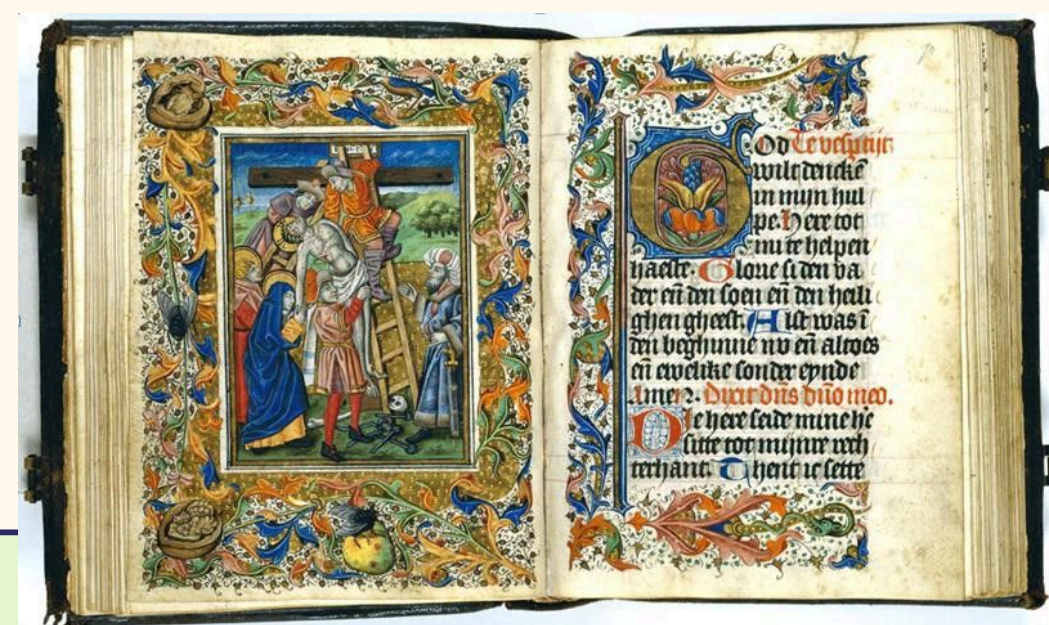 God Te vesptijt
wilt dencke
in mijn hul
pe. Here tot
mi te helpen
haeste. Glorie si den va
der eñ den soen eñ den heili
ghen gheest. Alst was ī
den beghinne nv eñ altoes
eñ ewelike sonder eynde
Amen. Dixit dñs dño meo.
Die here seide mine he
sitte tot mijnre rech
terhant. Thent ic sette